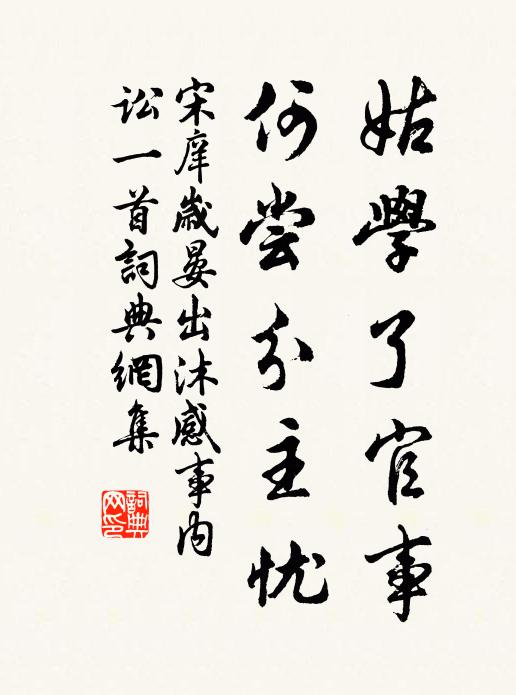 姑學了官事
何嘗分主忧
宋庠歲晏出沐感事内
訟一首詞典網集
詞典网印